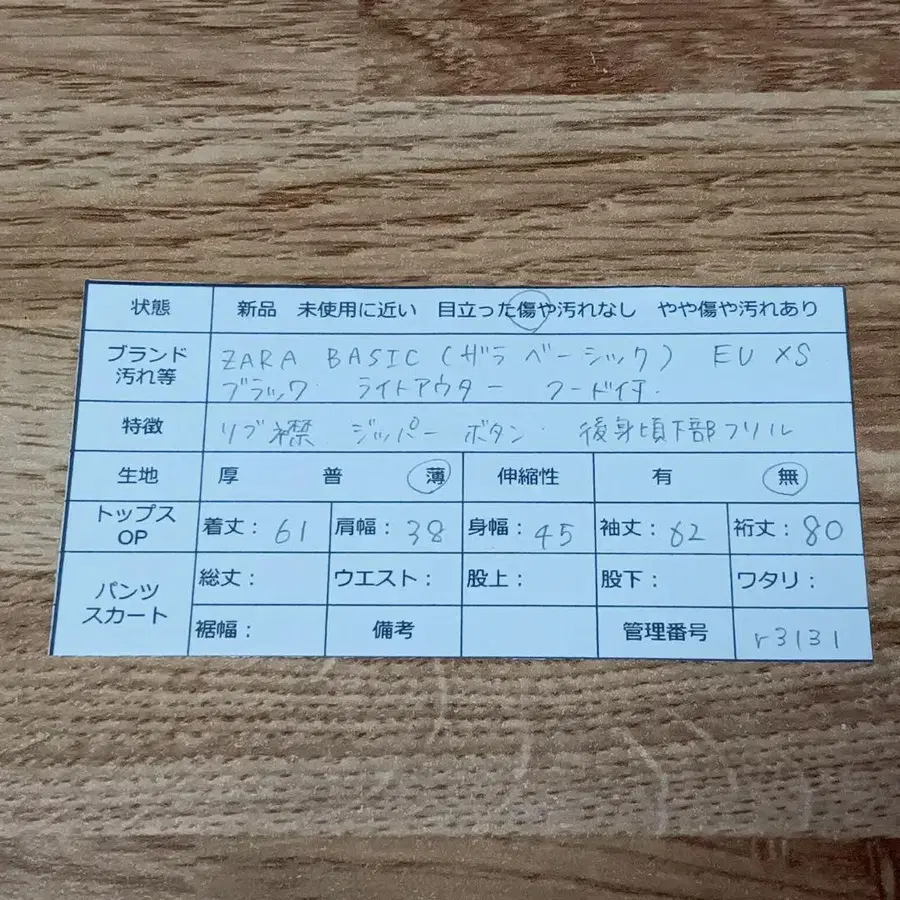 状態 新品 未使用に近い 目立った傷や汚れなし やや傷や汚れあり
ブランド 汚れ等 ZARA BASIC (ザラ ベーシック) EU XS
ブラック ライトアウター フード付.
特徴 リブ襟 ジッパー ボタン 後身頃下部フリル
生地 厚 普 薄 伸縮性 有 無
トップス OP 着丈: 61 肩幅: 38 身幅: 45 袖丈: 62 裄丈: 80
パンツ スカート 総丈: ウエスト: 股上: 股下: ワタリ:
裾幅: 備考 管理番号 r3131